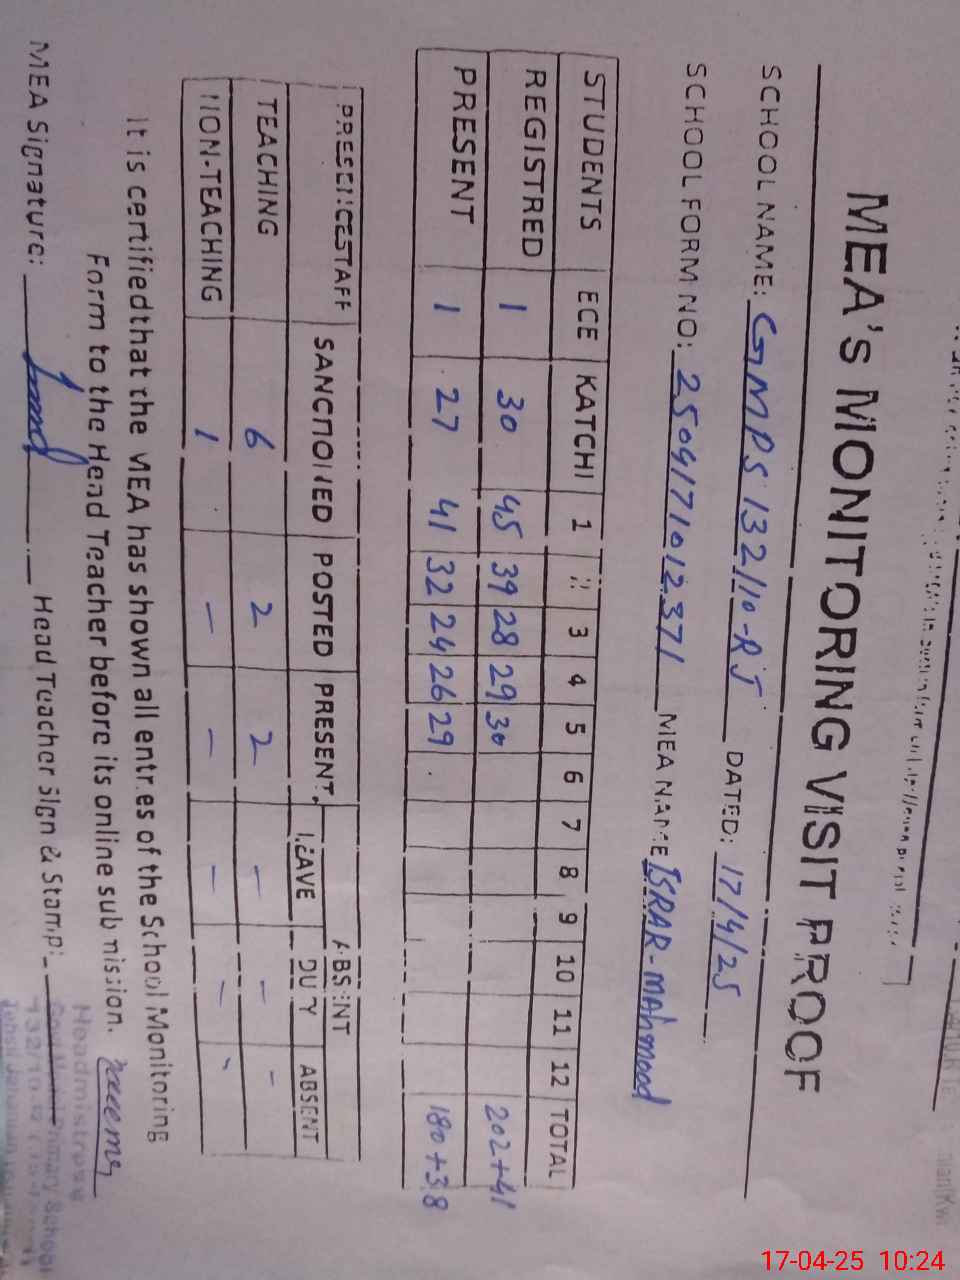 MEA's MONITORING VISIT PROOF
SCHOOL NAME: GMPS 132/10-RJ DATED: 17/4/25
SCHOOL FORM NO: 2504171012371 MEA NAME ISRAR-MAhmood
STUDENTS ECE KATCHI 1 3 4 5 6 7 8 9 10 11 12 TOTAL
REGISTRED 1 30 45 39 28 29 30 202+41
PRESENT 1 27 41 32 24 26 29 180+38
PRESENCESTAFF SANCTIONED POSTED PRESENT ABSENT
LEAVE DUTY ABSENT
TEACHING 6 2 2 - - -
NON-TEACHING 1 - - - - -
It is certified that the MEA has shown all entries of the School Monitoring
Form to the Head Teacher before its online submission.
MEA Signature: Head Teacher Sign & Stamp:
Headmistress
Govt Primary School
17-04-25 10:24